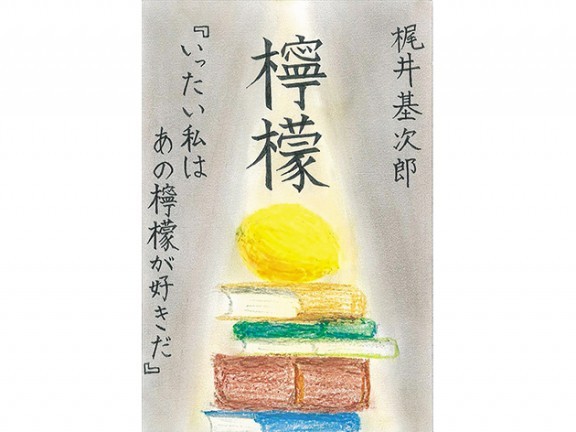 梶井基次郎
檸檬
『いったい私は
あの檸檬が好きだ』